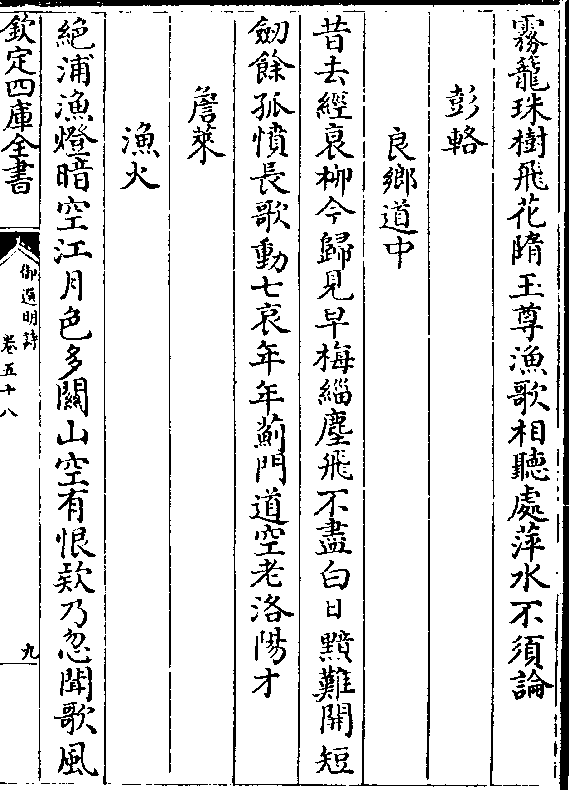 霧籠珠樹飛花隋玉尊漁歌相聽處萍水不須論
彭輅
良鄉道中
昔去經衰柳今歸見早梅緇塵飛不盡白日黯難開短
劒餘孤憤長歌動七哀年年薊門道空老洛陽才
詹萊
漁火
絕浦漁燈暗空江月色多關山空有恨欸乃忽聞歌風
欽定四庫全書
御選明詩
卷五十八
九